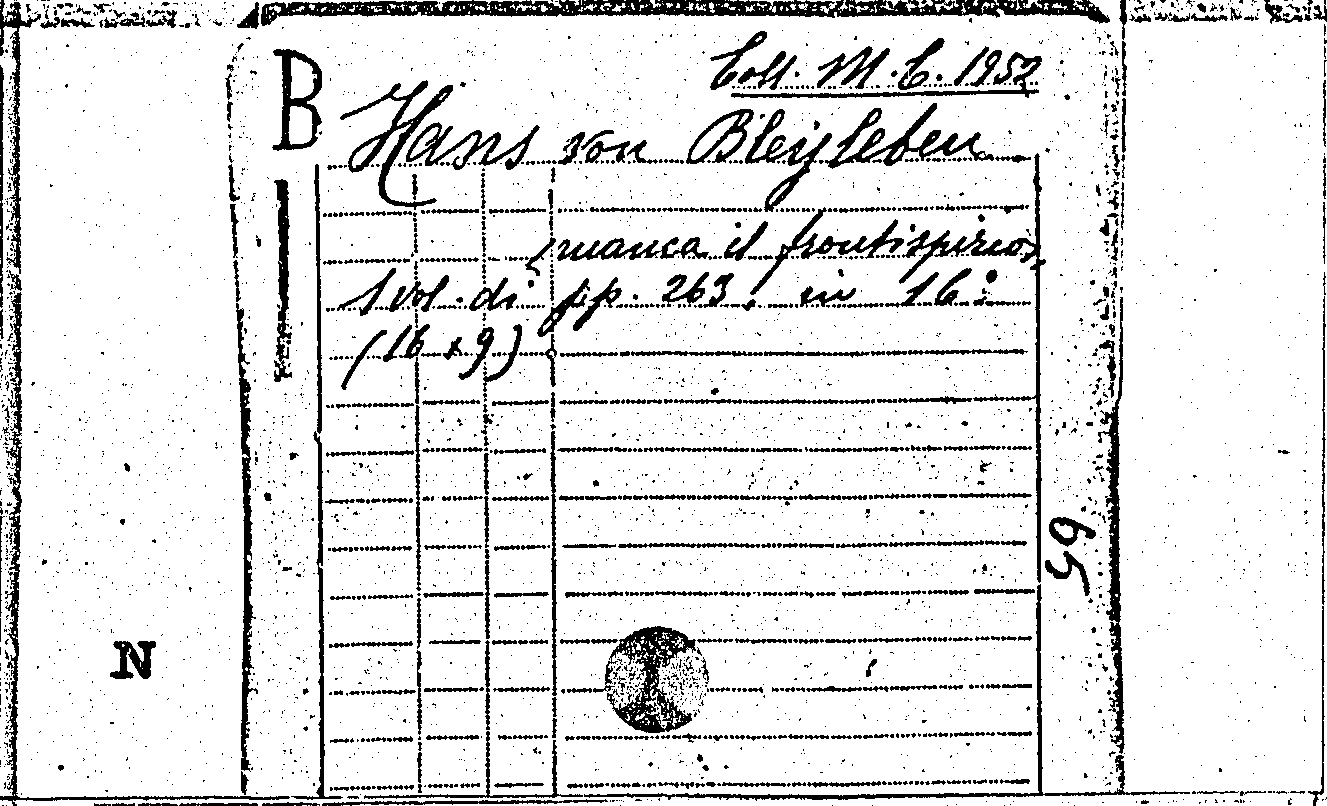 B
Coll. M. C. 1952
Hans von Bleyleben
(manca il frontispizio)
1 vol. di pp. 263, in 16º
(16 x 9)
59
N